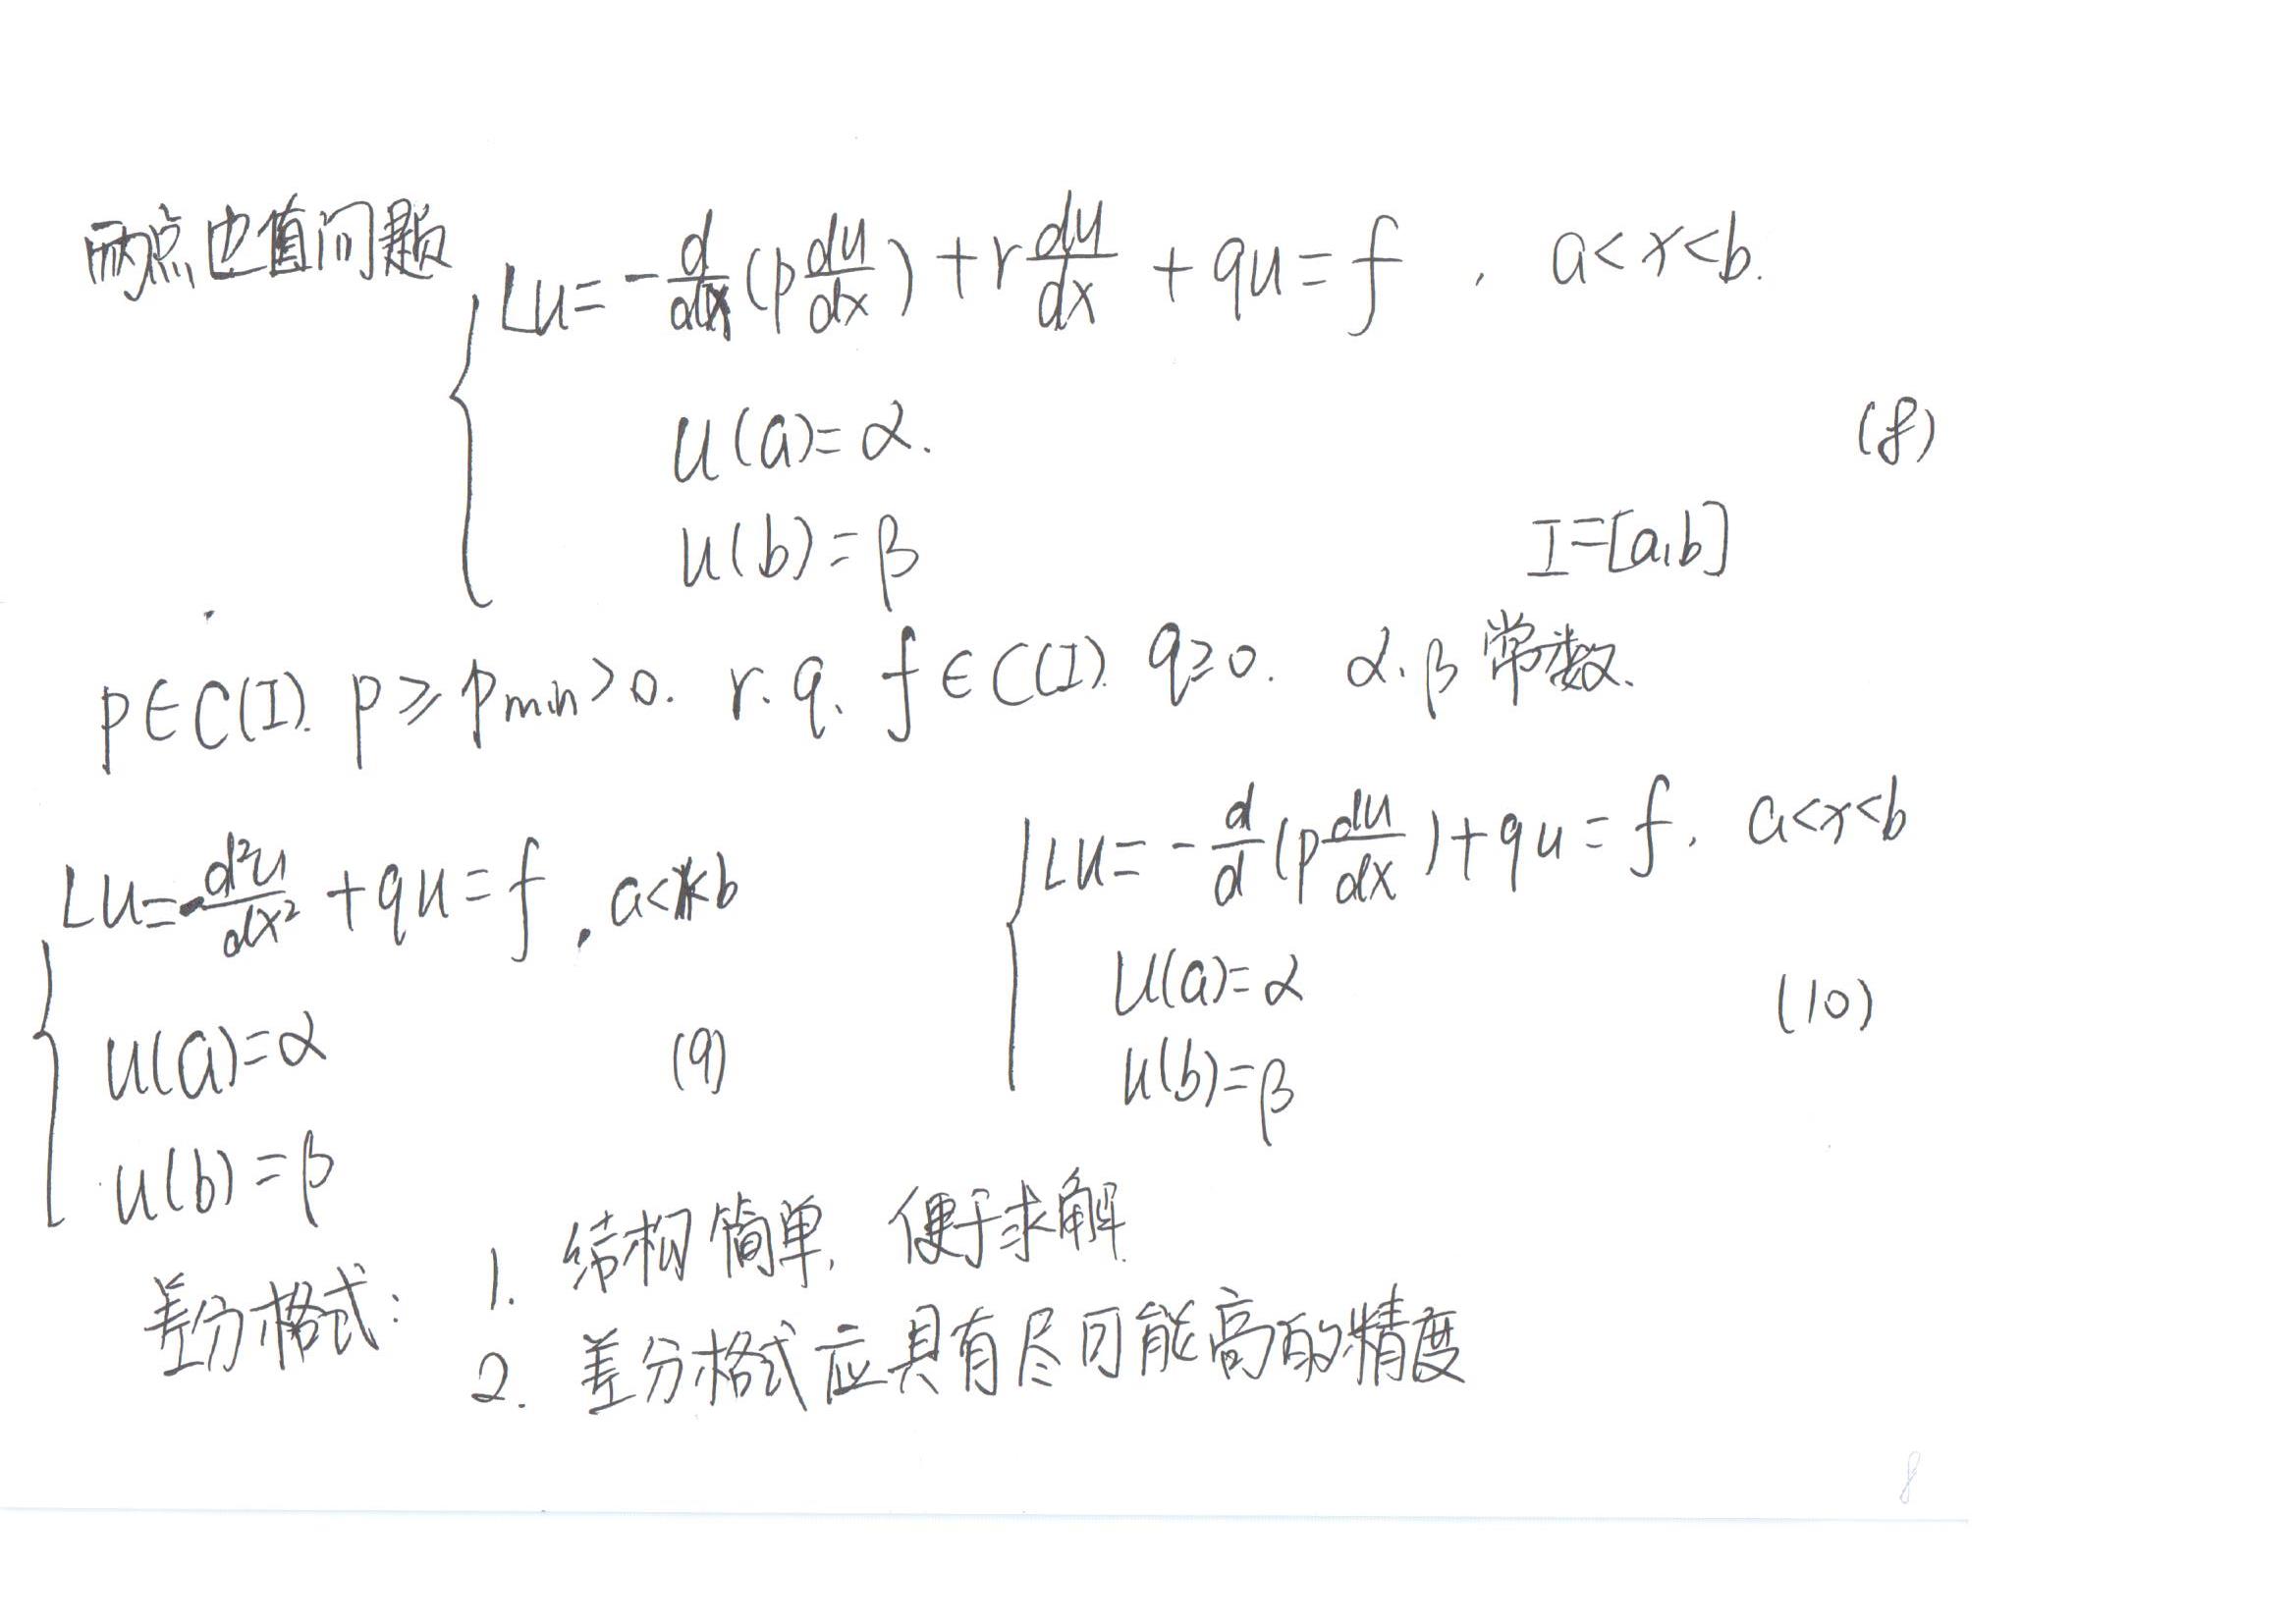 两点边值问题
Lu = -d/dx (p du/dx) + r du/dx + qu = f , a < x < b.
u(a) = α.
(8)
u(b) = β
I = [a,b]
p∈C(I). p ≥ p_min > 0. r. q. f∈C(I). q≥0. α.β 常数.
Lu = -d²u/dx² + qu = f , a<x<b
u(a) = α
(9)
u(b) = β
Lu = -d/d (p du/dx) + qu = f, a<x<b
u(a) = α
(10)
u(b) = β
差分格式: 1. 结构简单, 便于求解.
2. 差分格式应具有尽可能高的精度
8